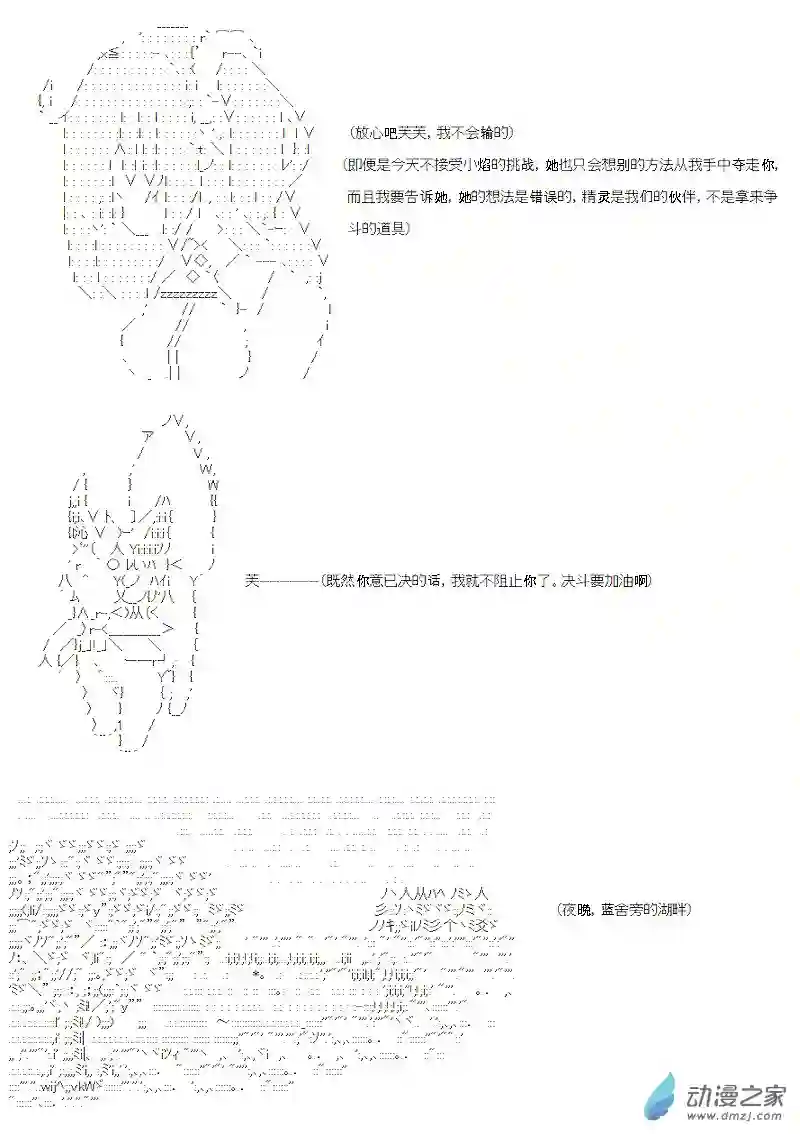 (放心吧芙芙, 我不会输的)
(即便是今天不接受小焰的挑战, 她也只会想别的方法从我手中夺走你,
而且我要告诉她, 她的想法是错误的, 精灵是我们的伙伴, 不是拿来争
斗的道具)
芙————(既然你意已决的话, 我就不阻止你了。决斗要加油啊)
(夜晚, 蓝舍旁的湖畔)
动漫之家
www.dmzj.com